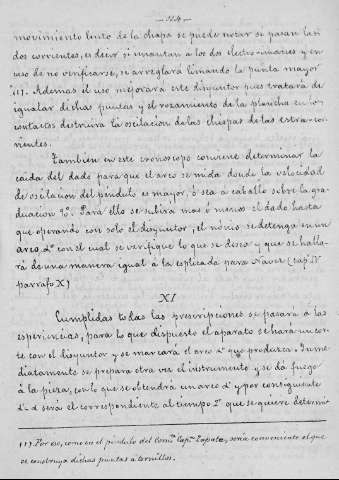 — 324 —
movimiento lento de la chapa se puede notar se pasan las
dos corrientes, es decir si imantan a los dos electro-imanes y en
caso de no verificarse, se arreglará limando la punta mayor
(1). Ademas el uso mejorará este disyuntor pues tratará de
igualar dichas puntas y el rozamiento de la plancha en los
contactos destruirá la oscilacion de las chispas de las extra-cor-
rientes.
Tambien en este cronoscopo conviene determinar la
caida del dado para que el arco se mida donde la velocidad
de oscilacion del péndulo es mayor, ó sea a caballo sobre la gra-
duacion 90. Para ello se subirá mas ó menos el dado hasta
que operando con solo el disyuntor, el nónio se detenga en un
arco d' con el cual se verifique lo que se desea y que se halla-
rá de una manera igual á la esplicada para Navez (cap. IV
parrafo X)
XI
Cumplidas todas las prescripciones se pasará a las
esperiencias, para lo que dispuesto el aparato se hará un cor-
te con el disyuntor y se marcará el arco d' que produzca. Inme-
diatamente se prepara otra vez el instrumento y se da fuego
á la pieza, con lo que se obtendrá un arco d y por consiguiente
d'-d será el correspondiente al tiempo que se quiere determi-
(1). Por eso, como en el péndulo del Com.te Cap.n Zapata, seria conveniente el que
se construya dichas puntas á tornillos.